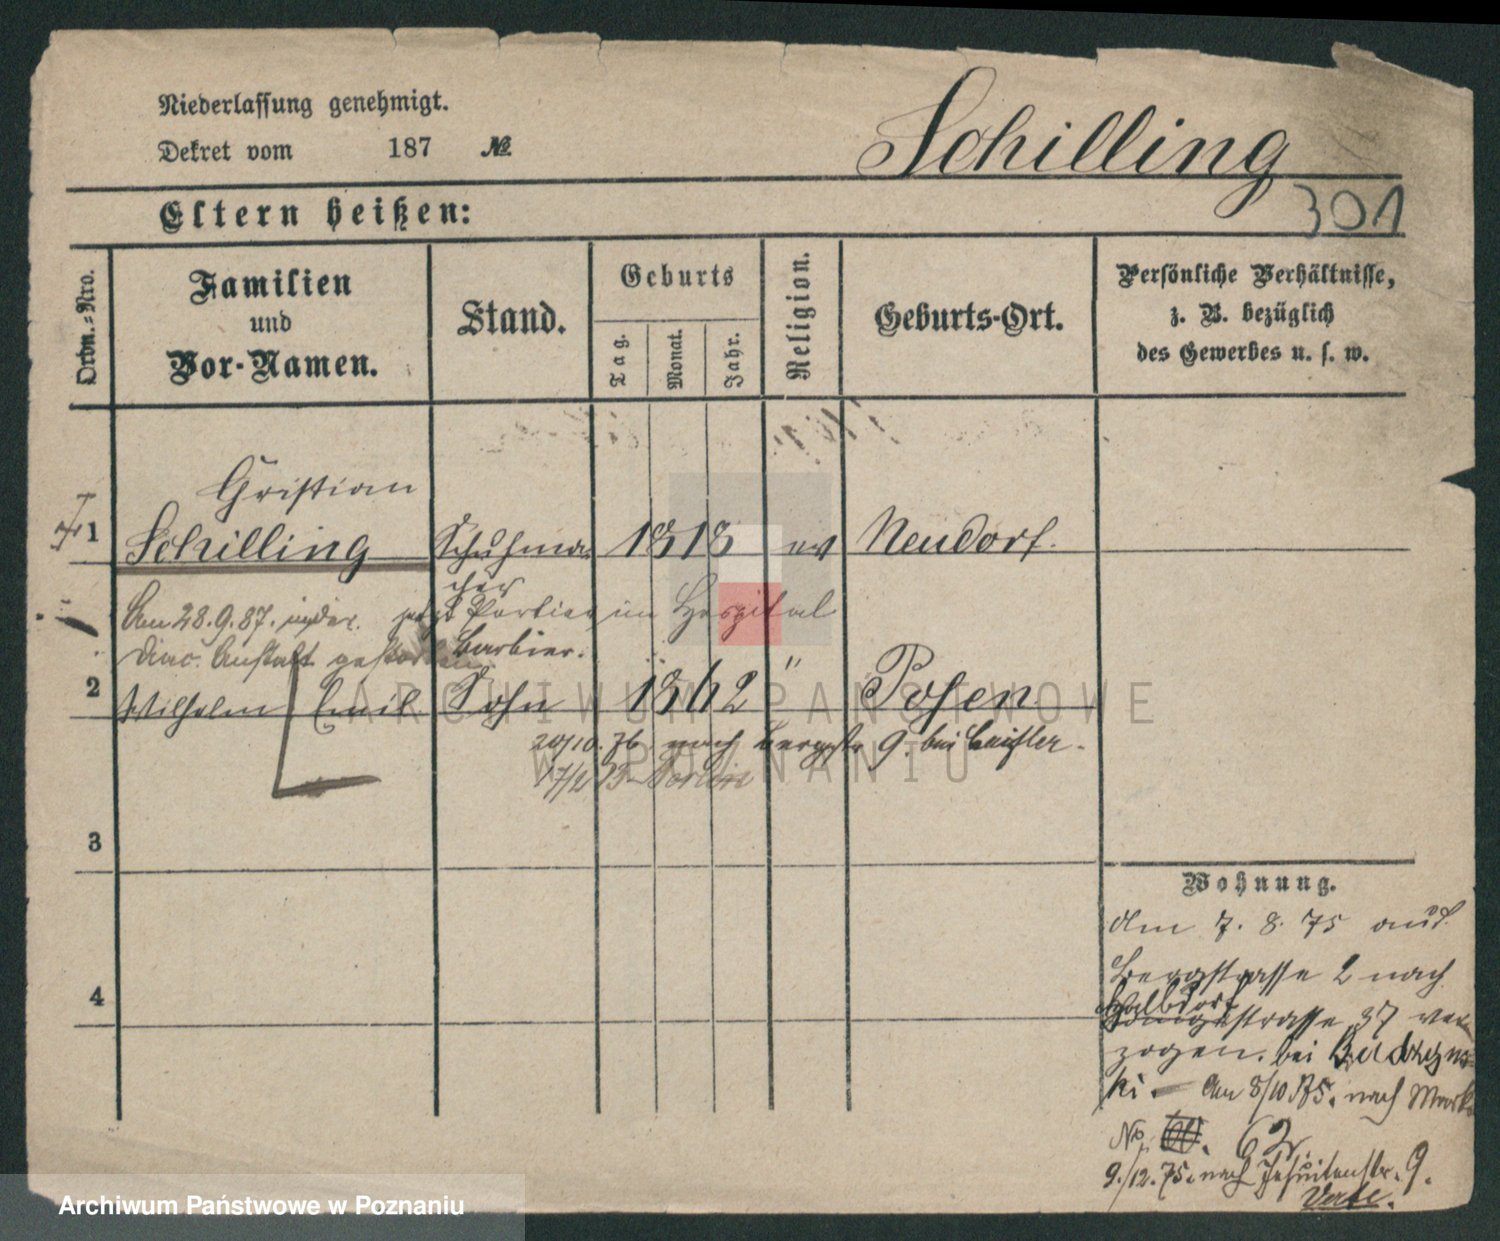 Niederlassung genehmigt.
Dekret vom 187 №
Schilling
301
Eltern heißen:
Ordn.-Nro.
Familien
und
Vor-Namen.
Stand.
Geburts
Tag.
Monat.
Jahr.
Religion.
Geburts-Ort.
Persönliche Verhältnisse,
z. B. bezüglich
des Gewerbes u. s. w.
Christian
1 Schilling Schuhma 1818 ev Neudorf.
cher
Am 28.9.87. in der jetzt Portier im Hospital
Diac. Anstalt gestorben
Barbier.
2 Wilhelm Emil Sohn 1842 " Posen
20/10. 76 nach Bergstr 9. bei
Berlin
3
4
Wohnung.
Am 7. 8. 75 aus
Bergstrasse 2 nach
Halbdorf
strasse 37 ver
zogen. bei
ki. — Am 8/10 75. nach Markt
No. 62.
9./12. 75. nach Jesuitenstr. 9.
Verte.
ARCHIWUM PAŃSTWOWE
W POZNANIU
Archiwum Państwowe w Poznaniu